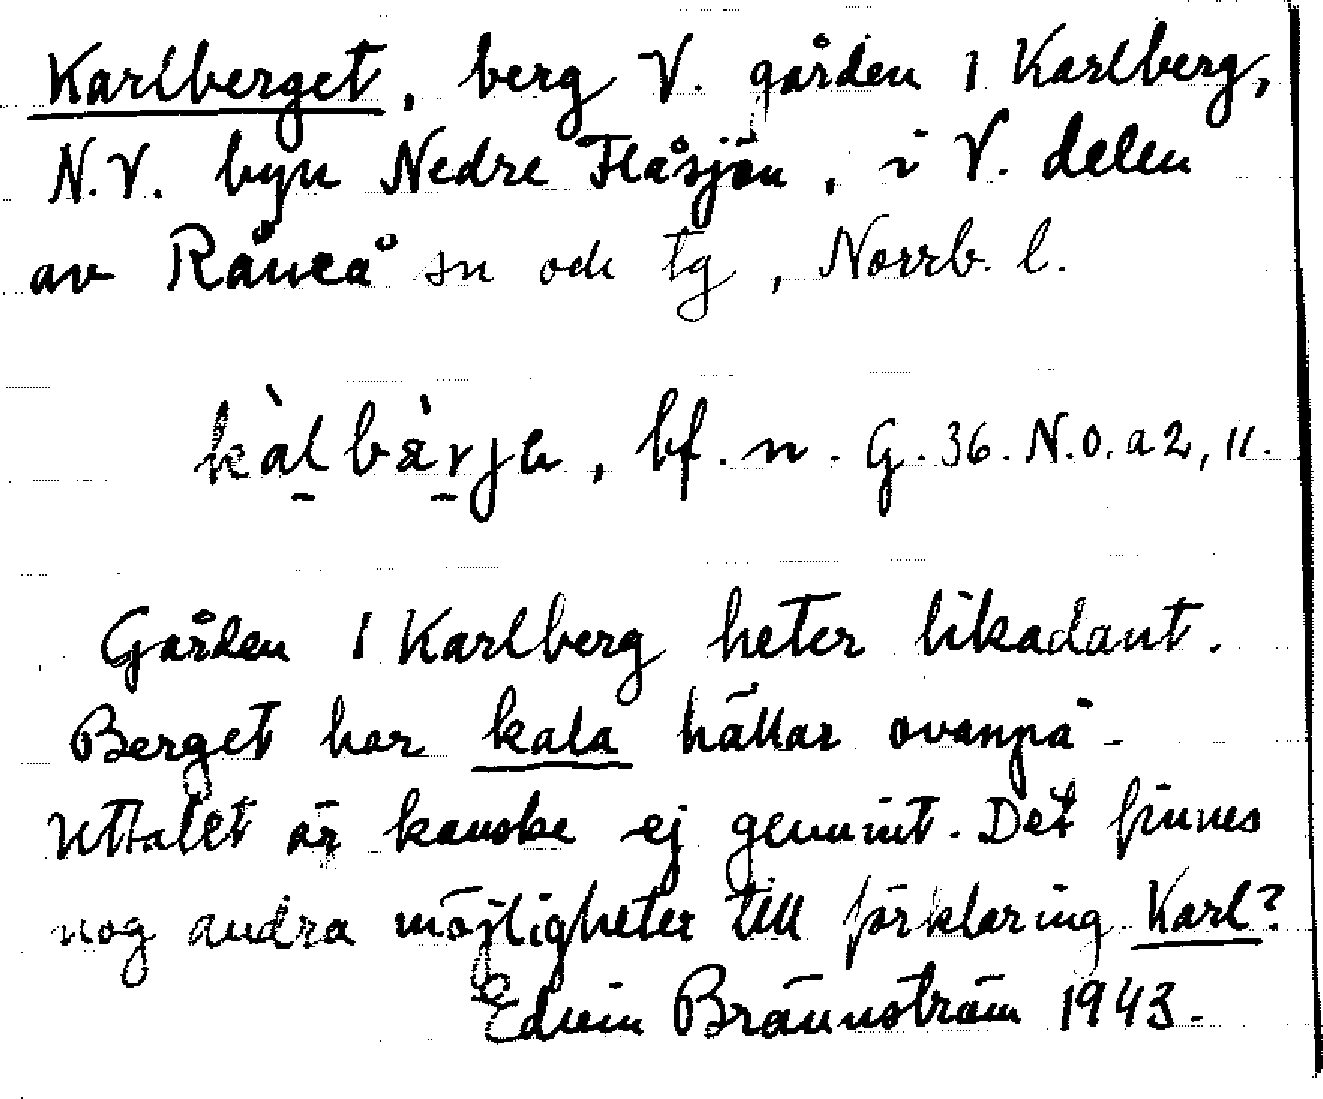 Karlberget, berg V. gården 1 Karlberg,
N.V. byn Nedre Flåsjön, i V. delen
av Råneå sn och tg, Norrb. l.
kàlbàrjə, bf. n. G. 36. N.O. a 2, 11.
Gården 1 Karlberg heter likadant.
Berget har kala hällar ovanpå.
Uttalet är kanske ej genuint. Det finnes
nog andra möjligheter till förklaring Karl?
Edvin Brännström 1943.